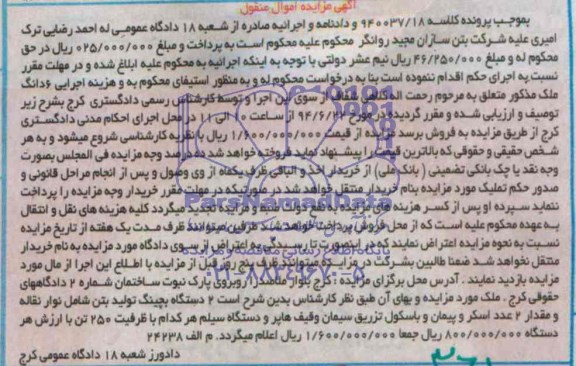 آگهی مزایده اموال منقول
بموجب پرونده کلاسه ۹۴۰۰۳۷/۱۸ و دادنامه و اجرائیه صادره از شعبه ۱۸ دادگاه عمومی له احمد رضایی ترک
امیری علیه شرکت بتن سازان مجید روانگر محکوم علیه محکوم است به پرداخت و مبلغ ۰۲۵/۰۰۰/۰۰۰ ریال در حق
محکوم له و مبلغ ۴۶/۲۵۰/۰۰۰ ریال نیم عشر دولتی با توجه به اینکه اجرائیه به محکوم علیه ابلاغ شده و در مهلت مقرر
نسبت به اجرای حکم اقدام ننموده است بنا به درخواست محکوم له و به منظور استیفای محکوم به و هزینه اجرایی ۶دانگ
ملک مذکور متعلق به مرحوم رحمت اله از سوی این اجرا و توسط کارشناس رسمی دادگستری کرج بشرح زیر
توصیف و ارزیابی شده و مقرر گردیده در مورخ ۹۴/۶/۲۲ از ساعت ۱۰ الی ۱۱ در محل اجرای احکام مدنی دادگستری
کرج از طریق مزایده به فروش برسد مزایده از قیمت ۱/۶۰۰/۰۰۰/۰۰۰ ریال با نظریه کارشناسی شروع میشود و به هر
شخص حقیقی و حقوقی که بالاترین قیمت را پیشنهاد نماید فروخته خواهد شد ده درصد وجه مزایده فی المجلس بصورت
وجه نقد یا چک بانکی تضمینی (بانک ملی) از خریدار اخذ و الباقی ظرف یکماه از وی وصول و پس از انجام مراحل قانونی و
صدور حکم تملیک مورد مزایده بنام خریدار منتقل خواهد شد در صورتیکه در مهلت مقرر خریدار وجه مزایده را پرداخت
ننماید سپرده او پس از کسر هزینه های مزایده به نفع دولت ضبط و مزایده تجدید میگردد کلیه هزینه های نقل و انتقال
به عهده محکوم علیه است که از محل فروش پرداخت خواهد شد طرفین میتوانند ظرف مدت یک هفته از تاریخ مزایده
نسبت به نحوه مزایده اعتراض نمایند که در اینصورت تا رسیدگی به اعتراض از سوی دادگاه مورد مزایده به نام خریدار
منتقل نخواهد شد ضمنا طالبین بشرکت در مزایده میتوانند ظرف پنج روز قبل از مزایده با اطلاع این اجرا از مال مورد
مزایده بازدید نمایند . آدرس محل برگزای مزایده : کرج بلوار ملاصدرا روبروی پارک نبوت ساختمان شماره ۲ دادگاههای
حقوقی کرج . ملک مورد مزایده و بهای آن طبق نظر کارشناس بدین شرح است ۲ دستگاه بچینگ تولید بتن شامل نوار نقاله
و مقدار ۲ عدد اسکر و پیمان و باسکول تزریق سیمان وقیف هاپر و دستگاه سیلم هر کدام با ظرفیت ۲۵۰ تن با ارزش هر
دستگاه ۸۰۰/۰۰۰/۰۰۰ ریال جمعا ۱/۶۰۰/۰۰۰/۰۰۰ ریال اعلام میگردد. م الف ۲۴۲۳۸
دادورز شعبه ۱۸ دادگاه عمومی کرج
ParsNamadData
پایگاه اطلاع رسانی مناقصه و مزایده
۰۲۱-۸۸۳۴۹۶۷۰-۵